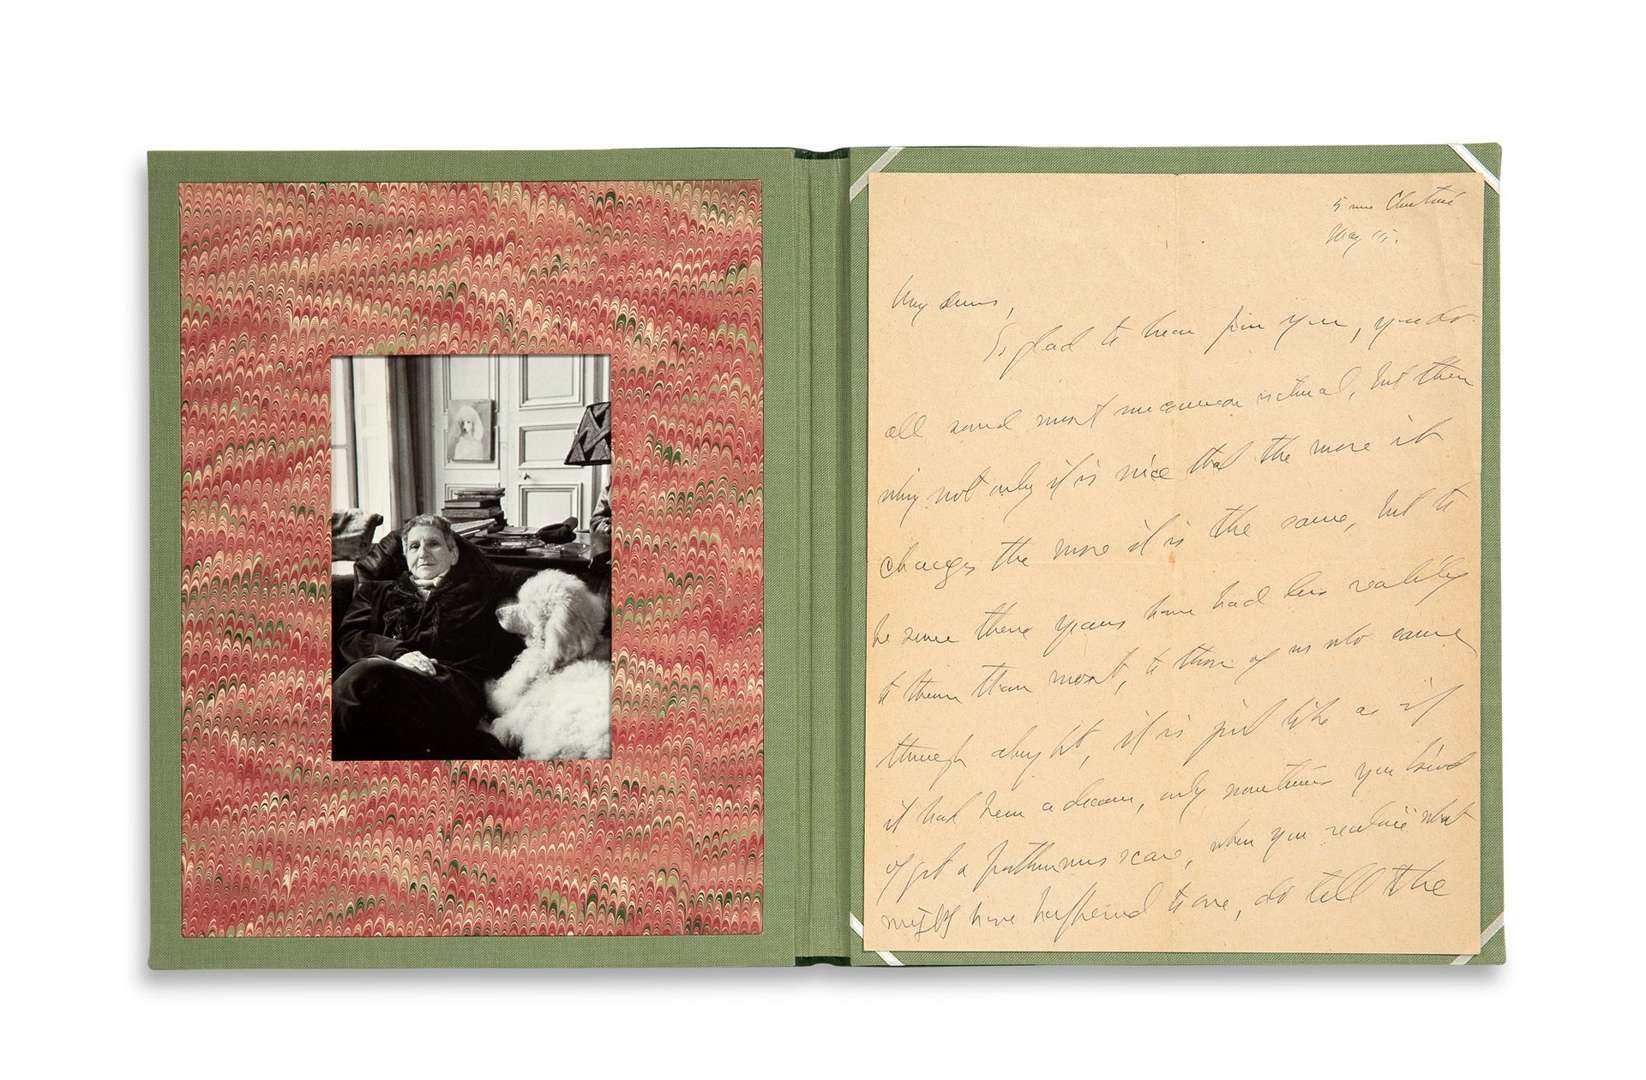 5 rue Christine
May 15.
My dears,
So glad to hear from you, you do
all sound most uncommon natural, but then
why not only it is nice that the more it
changes the more it is the same, but to
be sure these years have had less reality
to them than most, to those of us who came
through alright, it is just like as if
it had been a dream, only sometimes you kind
of get a posthumous scare, when you realise what
might have happened to one, do tell the